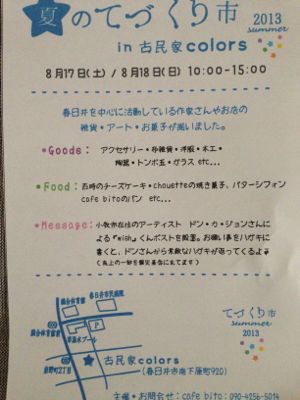 夏のてづくり市 2013 summer
in 古民家colors
8月17日(土) / 8月18日(日) 10:00-15:00
春日井を中心に活動している作家さんやお店の
雑貨・アート・お菓子が揃いました。
*Goods: アクセサリー・布雑貨・洋服・木工・
陶器・トンボ玉・ガラス etc...
*Food: 四時のチーズケーキ・chouetteの焼き菓子、バターシフォン
cafe bitoのパン etc...
*Message: 小牧市在住のアーティスト ドン・カ・ジョンさんに
よる『wish』くんポストを設置。お願い事をハガキに
書くと、ドンさんから素敵なハガキが返ってくるよ♪
春日井市民病院
総合体育館
P
温水プール
古民家colors
(春日井市南下原町920)
てづくり市
summer
2013
主催・お問合せ: cafe bito: 090-4256-5014